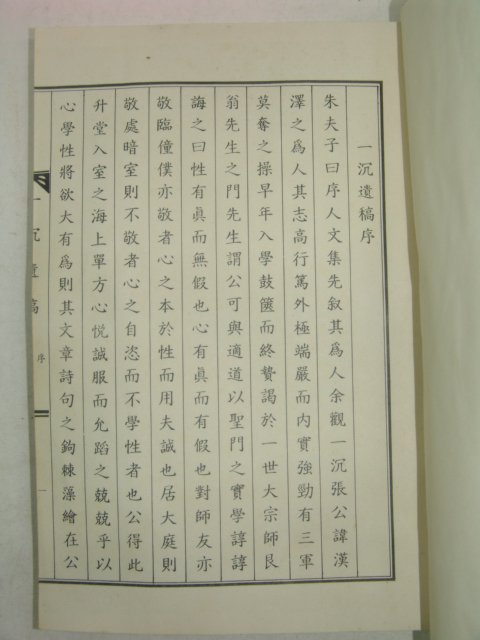 一沉遺稿序
朱夫子曰序人文集先叙其為人余觀一沉張公諱漢
澤之為人其志高行篤外極端嚴而内實強勁有三軍
莫奪之操早年入學鼓篋而終贄謁於一世大宗師艮
翁先生之門先生謂公可與適道以聖門之實學諄諄
誨之曰性有眞而無假也心有眞而有假也對師友亦
敬臨僮僕亦敬者心之本於性而用夫誠也居大庭則
敬處暗室則不敬者心之自恣而不學性者也公得此
升堂入室之海上單方心悦誠服而允蹈之兢兢乎以
心學性將欲大有為則其文章詩句之鉤棘藻繪在公
一沉遺稿
序
一